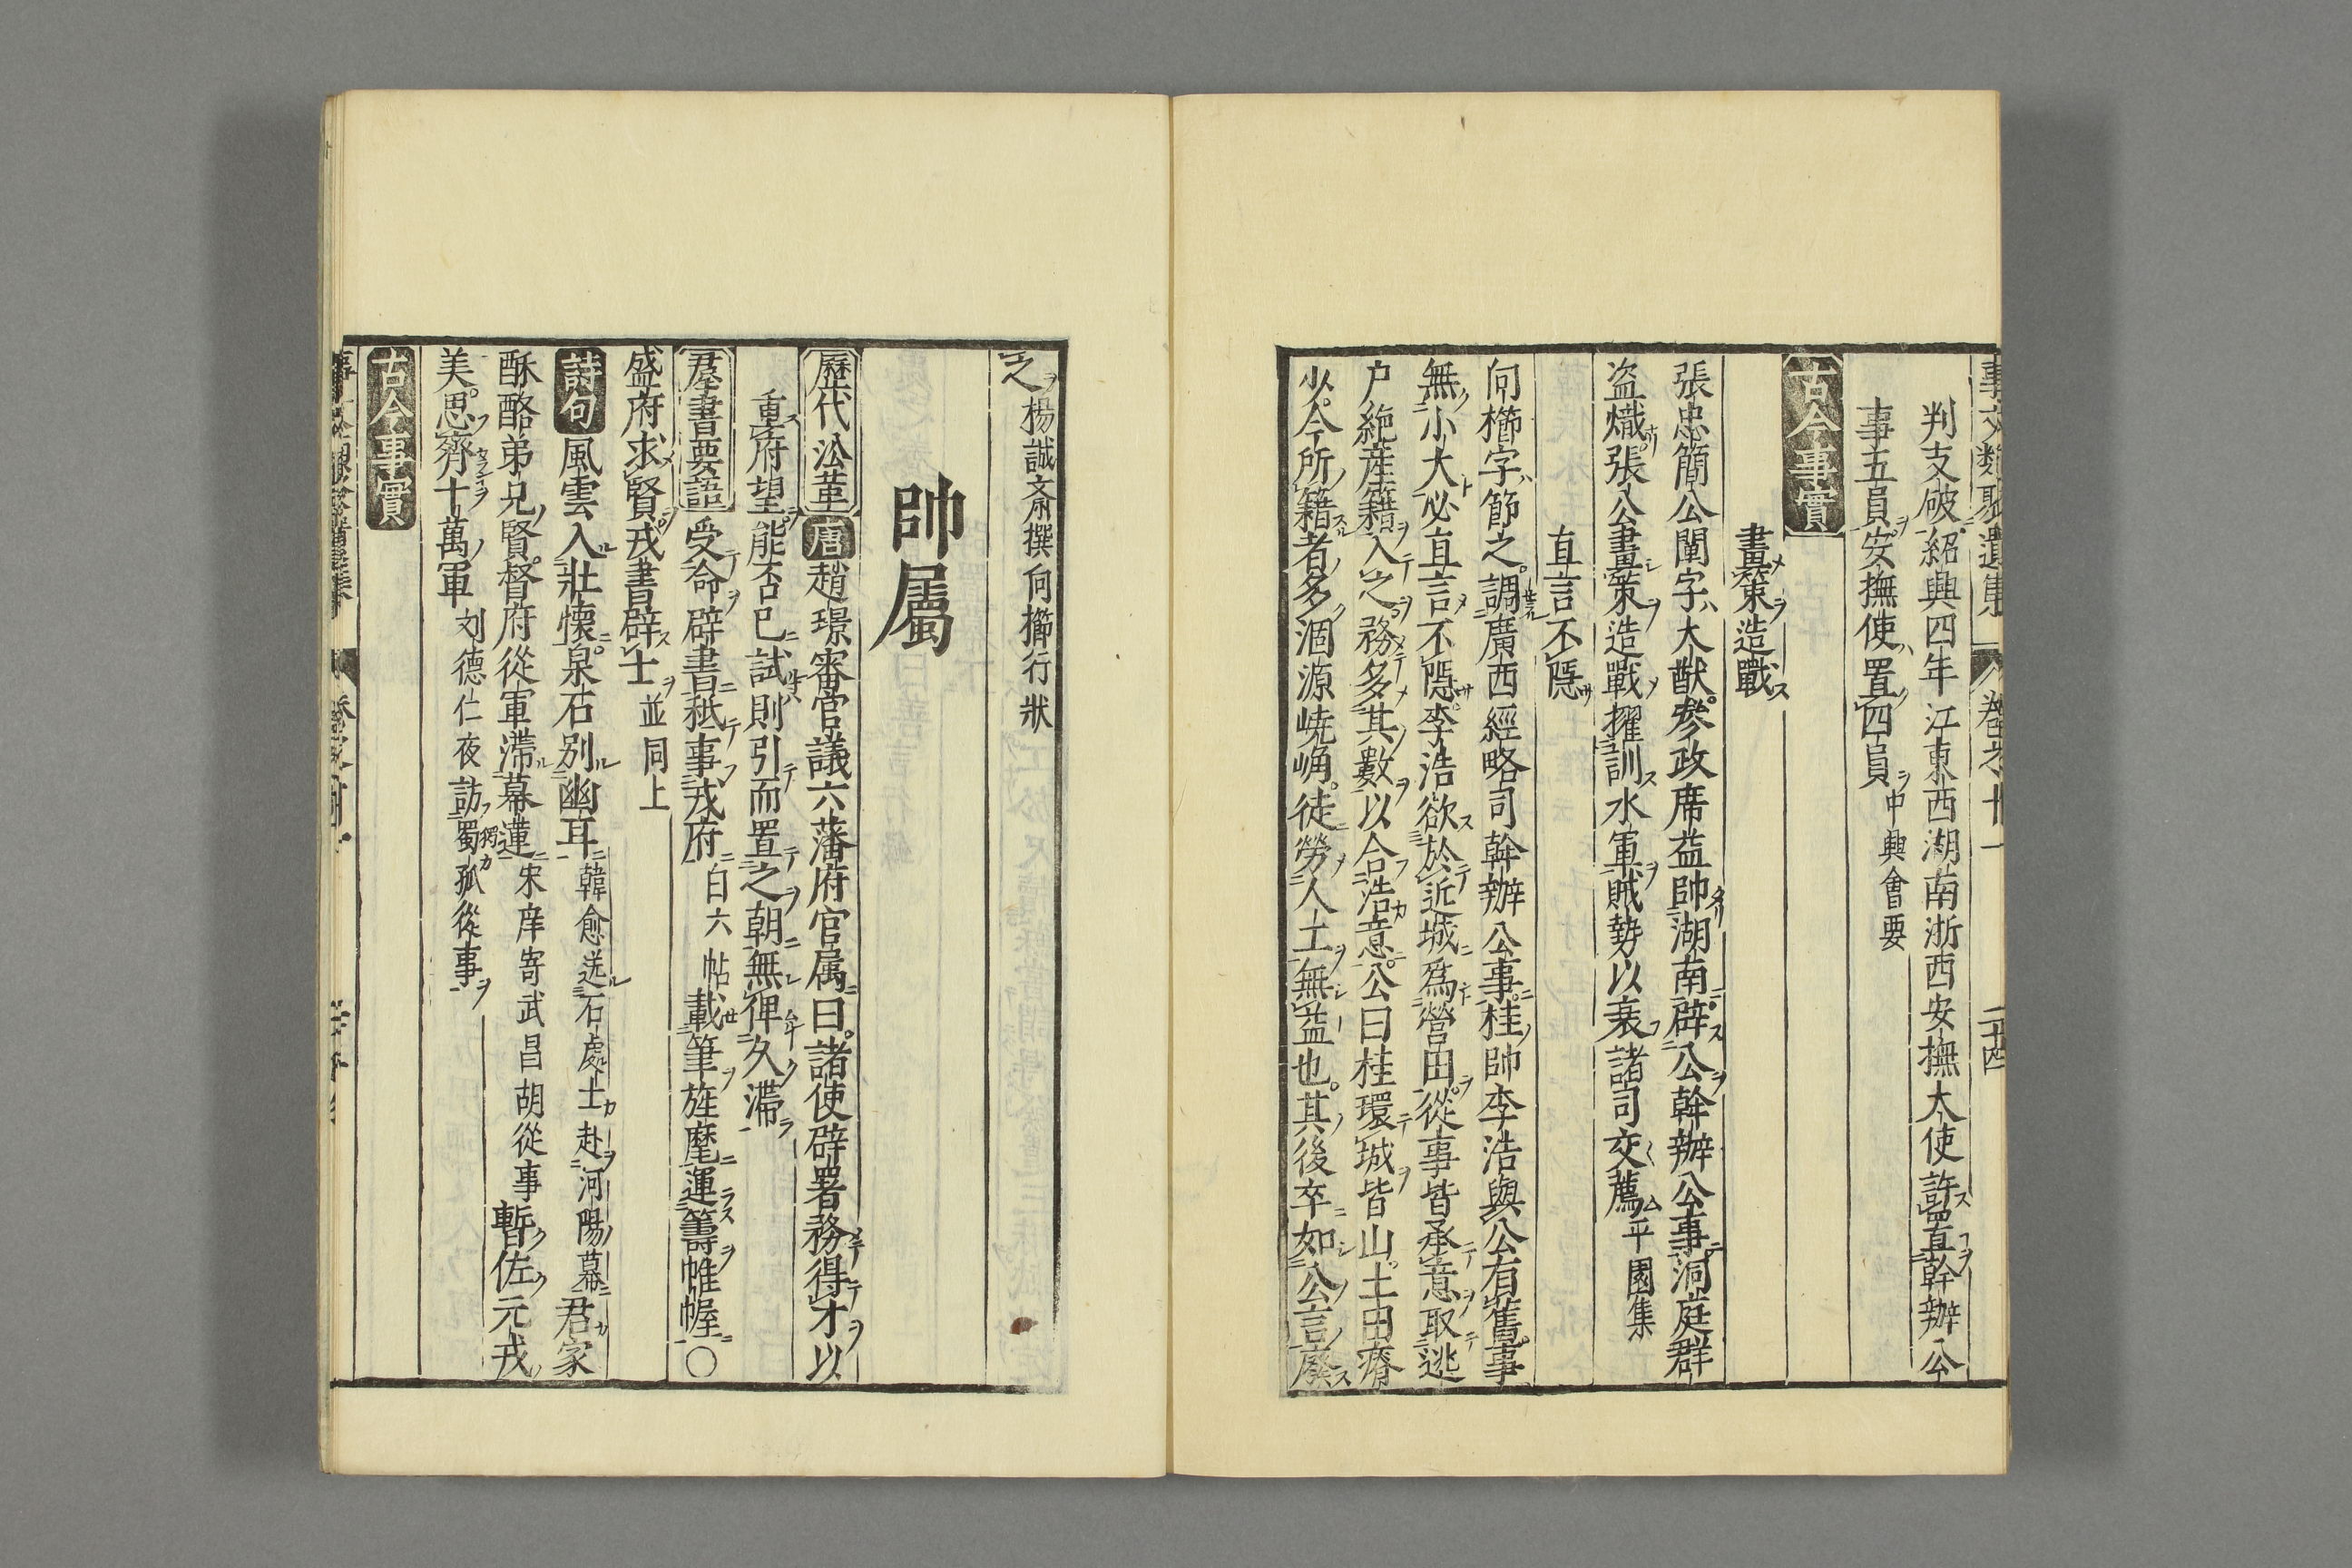 事文類聚遺集 卷之十一 二十四
判支破紹興四年江東西湖南浙西安撫大使許置直幹辦公
事五員安撫使置四員 中興會要
古今事實
畫策造戰
張忠簡公闡字大猷參政席益帥湖南辟公幹辦公事洞庭群
盗熾張公畫策造戰擢訓水軍賊勢以衰諸司交薦 平園集
直言不隱
向櫛字節之調廣西經略司幹辦公事桂帥李浩與公有舊事
無小大必直言不隱李浩欲於近城爲營田從事皆承意取逃
户絶産籍入之務多其數以合浩意公曰桂環城皆山土田瘠
少今所籍者多涸源嶢崅徒勞人士無益也其後卒如公言廢
之 楊誠斎撰向擳行狀
帥屬
歷代沿革 唐 趙璟審官議六藩府官属曰諸使辟署務得才以
重府望能否已試則引而置之朝無俾久滯
羣書要語 受命辟書秖事戎府 白六帖 載筆旌麾運籌帷幄○
盛府求賢戎書辟士 並同上
詩句 風雲入壯懷泉石别幽耳 韓愈送石處士赴河陽幕 君家
酥酪弟兄賢督府從軍滯幕蓮 宋庠寄武昌胡從事 暫佐元戎
美思齊十萬軍 刘德仁夜訪蜀孤從事
古今事實